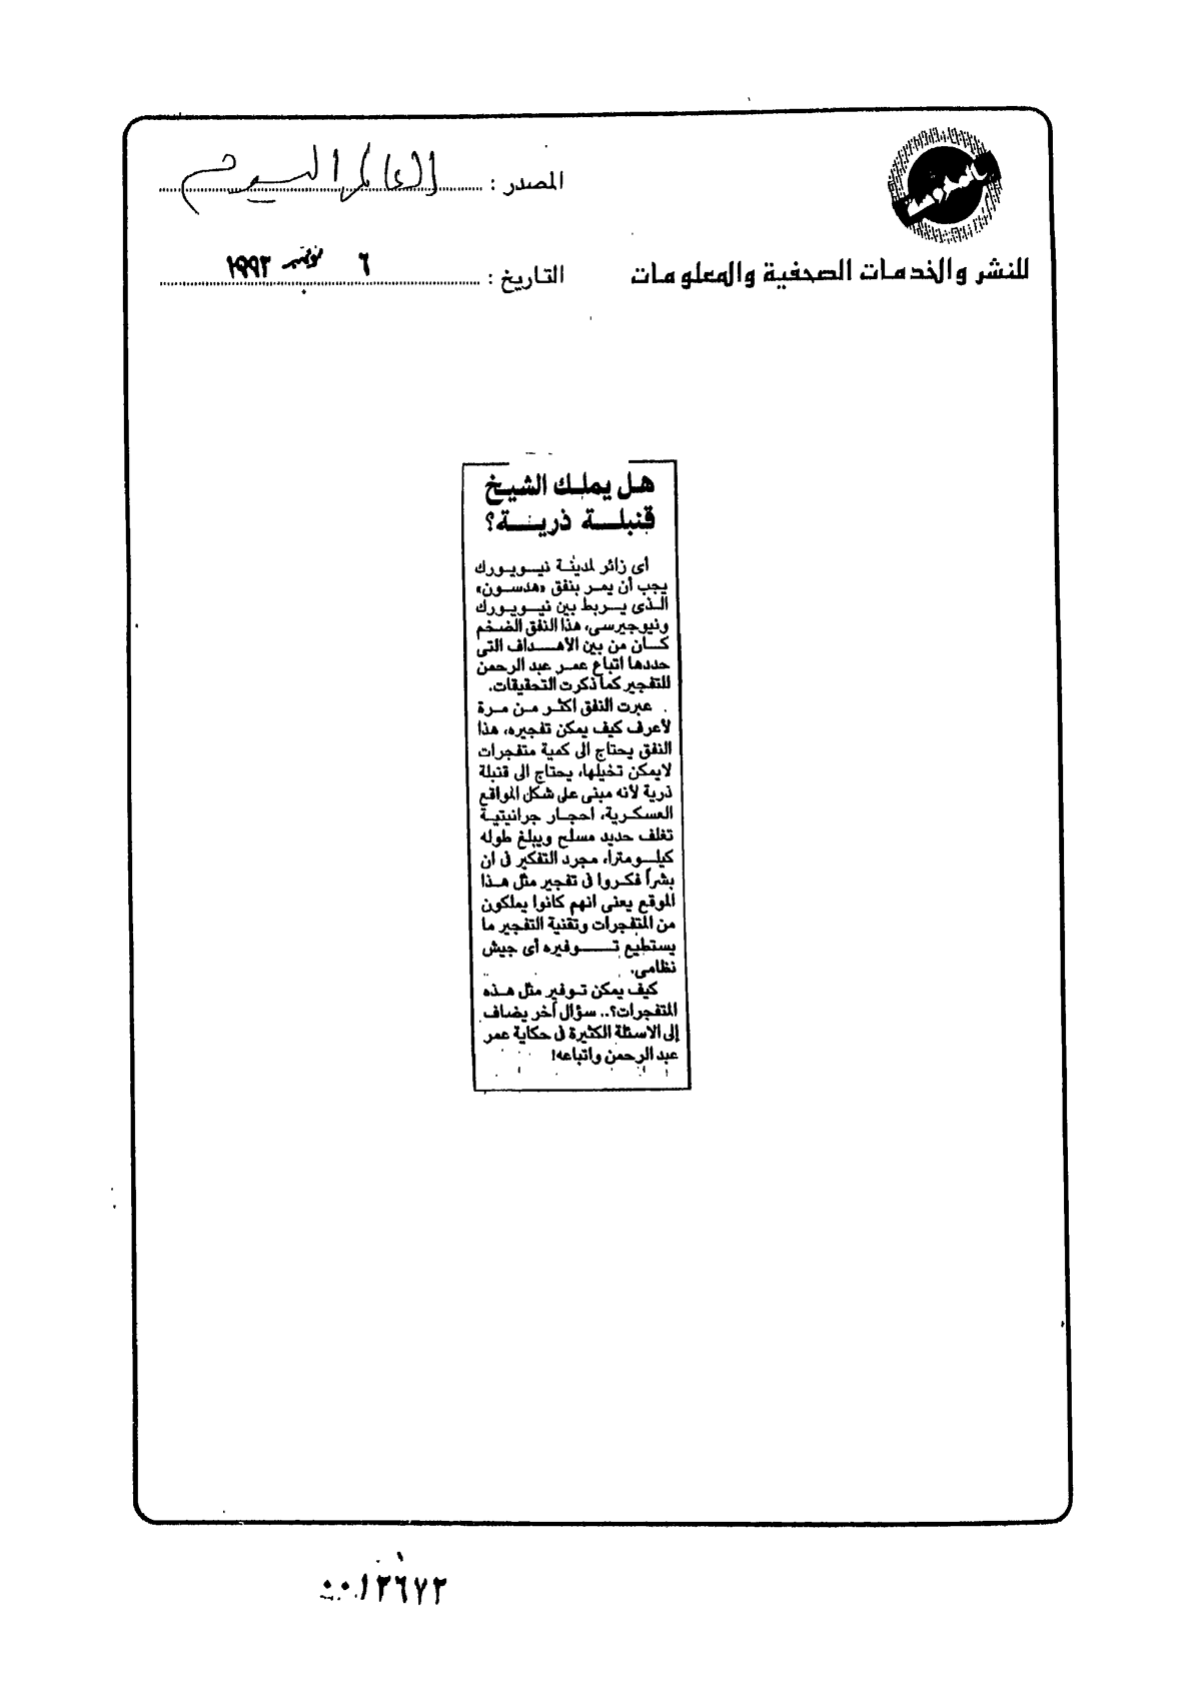 المصدر : العالم اليوم
التاريخ : ٦ نوفمبر ١٩٩٣
للنشر والخدمات الصحفية والمعلومات
هل يملك الشيخ
قنبلة ذرية؟
أى زائر لمدينة نيويورك
يجب أن يمر بنفق «هدسون»
الذى يربط بين نيويورك
ونيوجيرسى، هذا النفق الضخم
كان من بين الأهداف التى
حددها اتباع عمر عبد الرحمن
للتفجير كما ذكرت التحقيقات.
عبرت النفق اكثر من مرة
لأعرف كيف يمكن تفجيره، هذا
النفق يحتاج الى كمية متفجرات
لايمكن تخيلها، يحتاج الى قنبلة
ذرية لأنه مبنى على شكل المواقع
العسكرية، احجار جرانيتية
تغلف حديد مسلح ويبلغ طوله
كيلومترا، مجرد التفكير فى ان
بشراً فكروا فى تفجير مثل هذا
الموقع يعنى انهم كانوا يملكون
من المتفجرات وتقنية التفجير ما
يستطيع توفيره أى جيش
نظامى.
كيف يمكن توفير مثل هذه
المتفجرات؟.. سؤال آخر يضاف
إلى الاسئلة الكثيرة فى حكاية عمر
عبد الرحمن واتباعه!